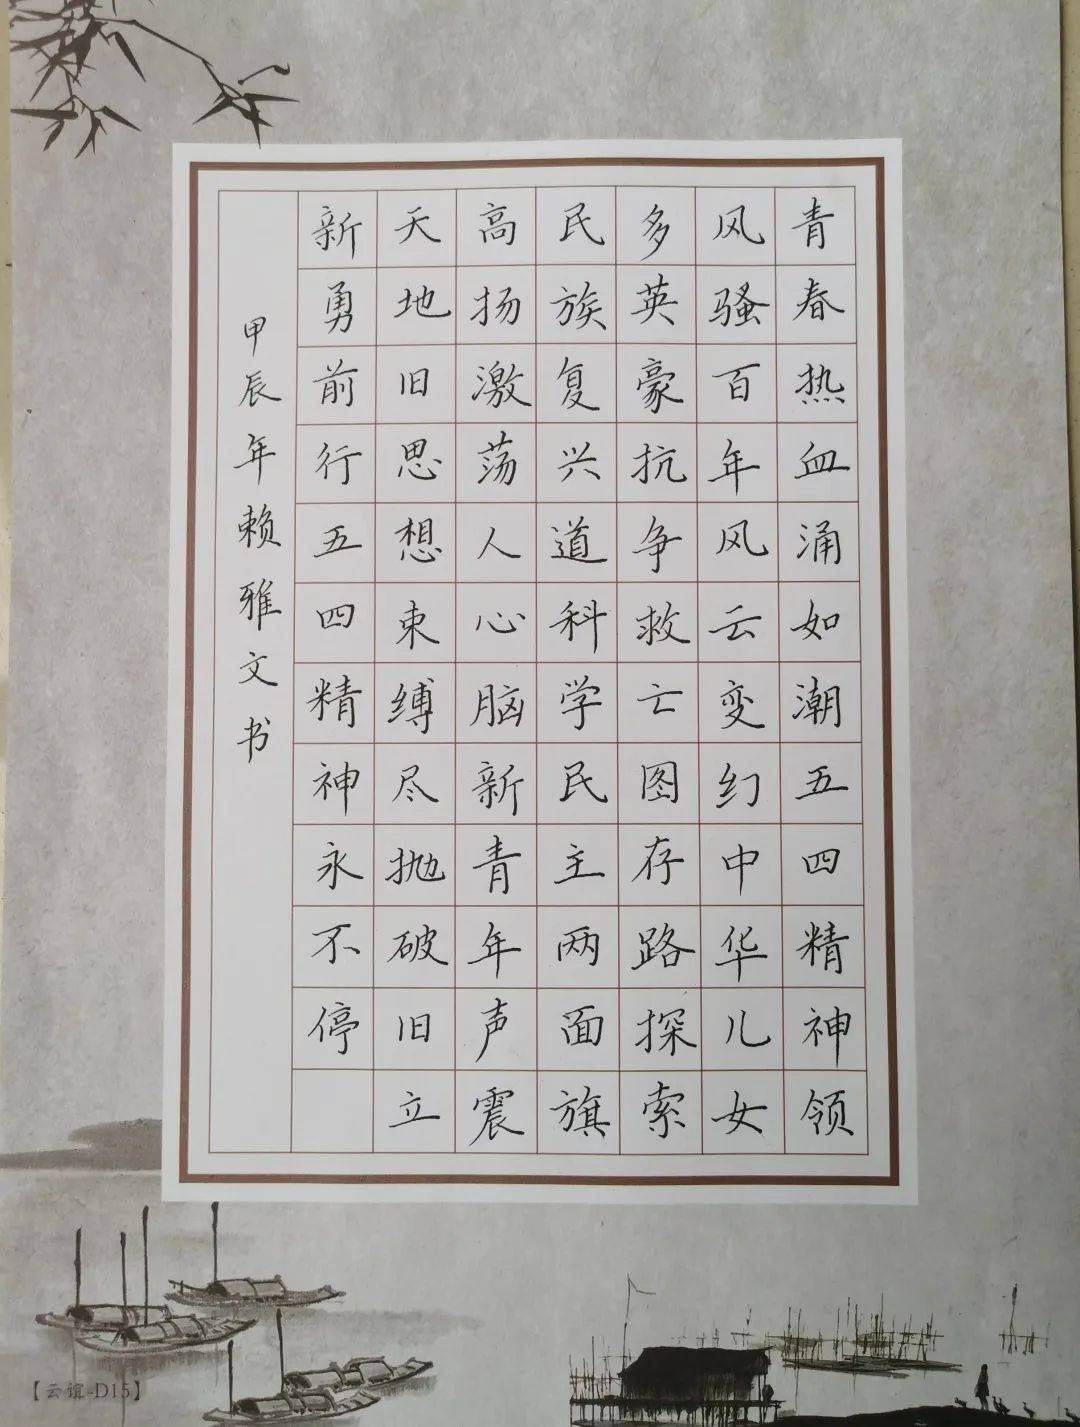 青春热血涌如潮五四精神领
风骚百年风云变幻中华儿女
多英豪抗争救亡图存路探索
民族复兴道科学民主两面旗
高扬激荡人心脑新青年声震
天地旧思想束缚尽抛破旧立
新勇前行五四精神永不停
甲辰年赖雅文书
【云谊-D15】